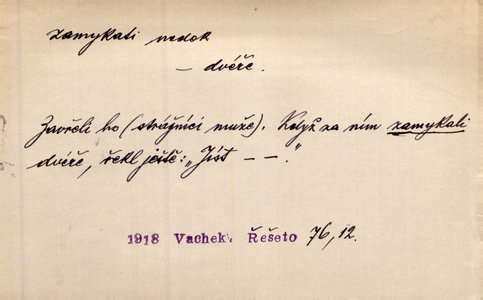 zamykati nedok
– dvéře.
Zavřeli ho (strážníci muže). Když za ním zamykali
dvéře, řekl ještě: „Jíst – –."
1918 Vachek. Řešeto 76,12.